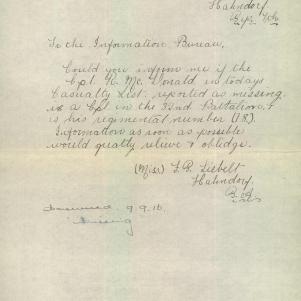 Hahndorf
To the Information Bureau,
Could you inform me if the
Cpl. R. Mc Donald in todays
Casualty List. reported as missing
is a Cpl in the 32nd Battalion, &
is his regimental number (18).
Information as soon as possible
would greatly relieve & obledge.
(Miss) F. B. Liebelt
Hahndorf
S.A.
9.9.16
Missing